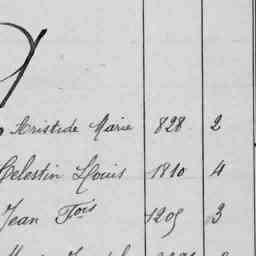 Aristide Marie 828 2
Celestin Louis 1810 4
Jean Fois 1209 3